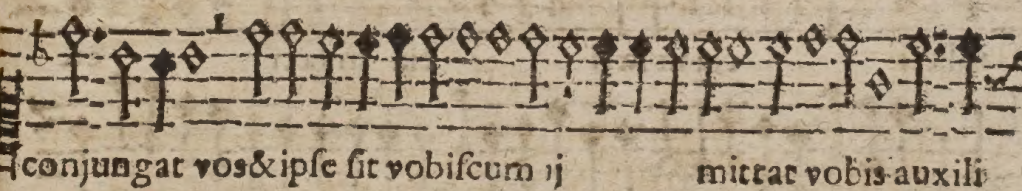 conjungat vos&ipſe ſit vobiſcum ij mittat vobis auxili